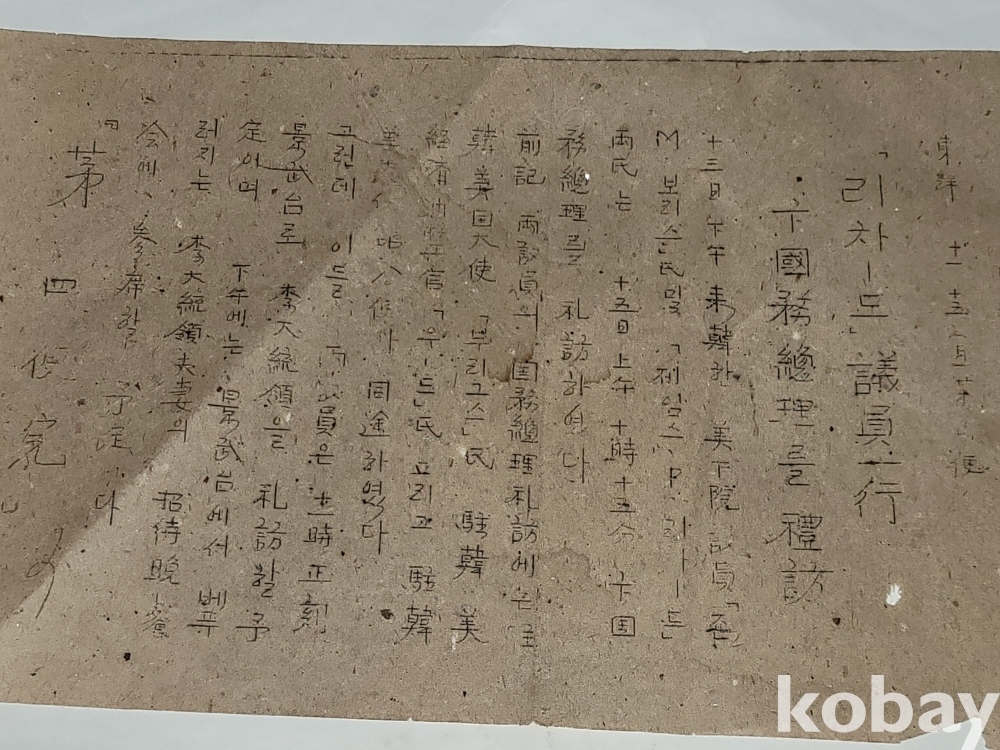 東洋 十一 十五 便
「리차ー드」議員一行
卞國務總理를 禮訪
十三日 下午 来韓한 美下院 議員「죤
M 보리슨氏및 「제임스P 리차ー드」
両氏는 十五日 上午 十時 十五分 卞国
務總理를 礼訪하였다
前記 両議員의 国務總理 礼訪에는 主
韓美国大使 「부리그스」氏 駐韓 美
経済 官「우ー드」氏 그리고 駐韓
同途하였다
그런데 이들 員은 十一時 正刻
景武台로 李大統領을 礼訪할 予
定이며 下午에는 景武台에서 베푸
러지는 李大統領夫妻의 招待晩餐
会에 参席할 予定이다
第四
kobay